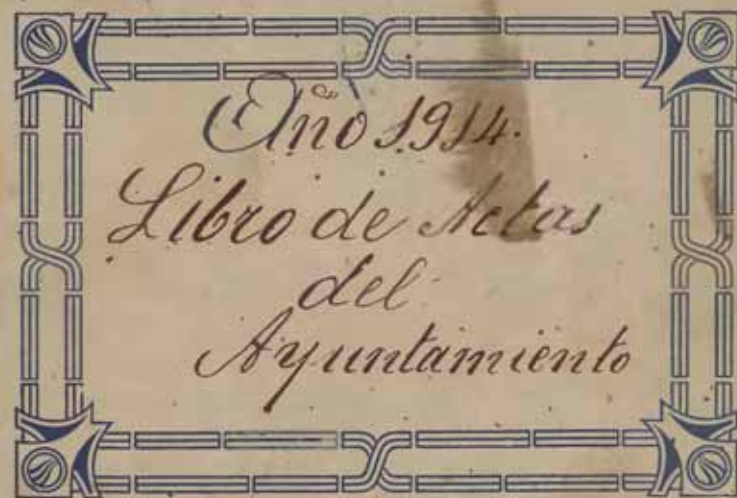 Año 1914.
Libro de Actas
del
Ayuntamiento